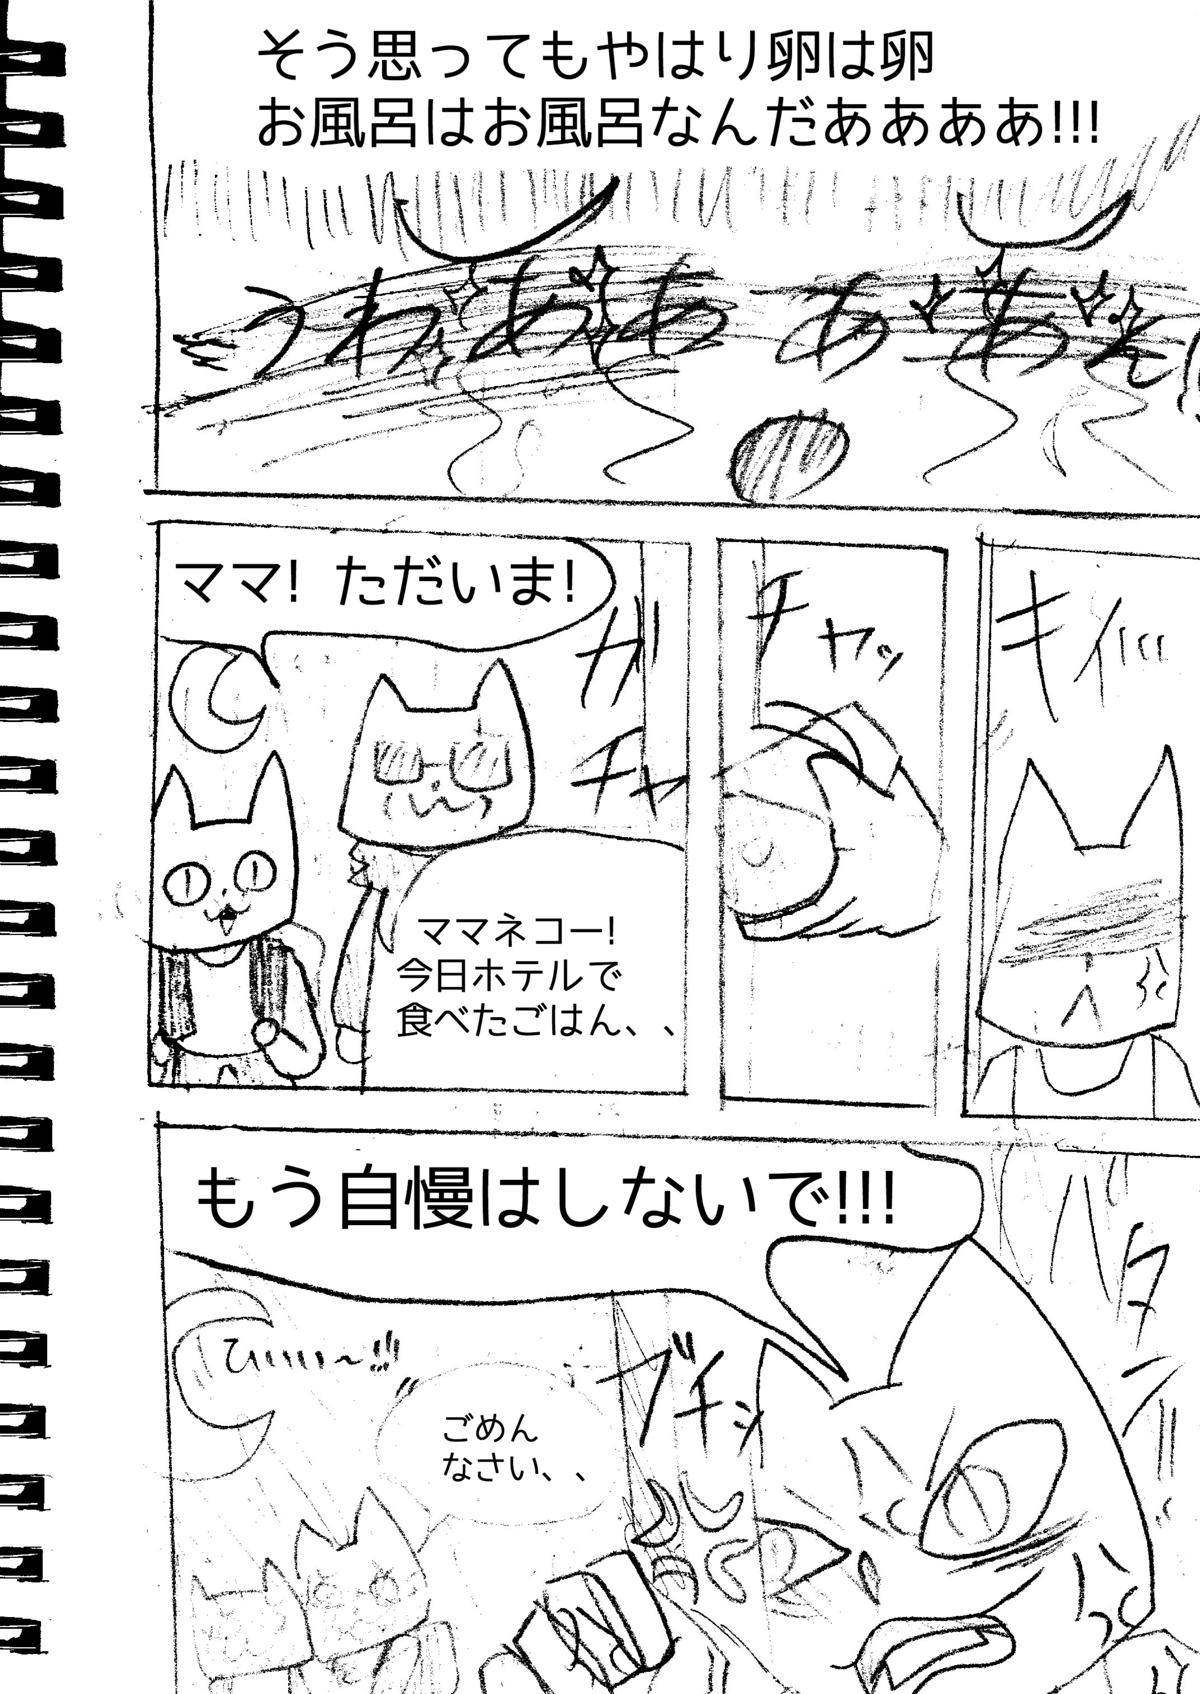 そう思ってもやはり卵は卵
お風呂はお風呂なんだああああ!!!
うわああ ああん!!
キィ
チャッ
ガチャ
ママ! ただいま!
ママネコー!
今日ホテルで
食べたごはん、、
もう自慢はしないで!!!
バタン
ブチッ
ひいいい〜!!!
ごめん
なさい、、